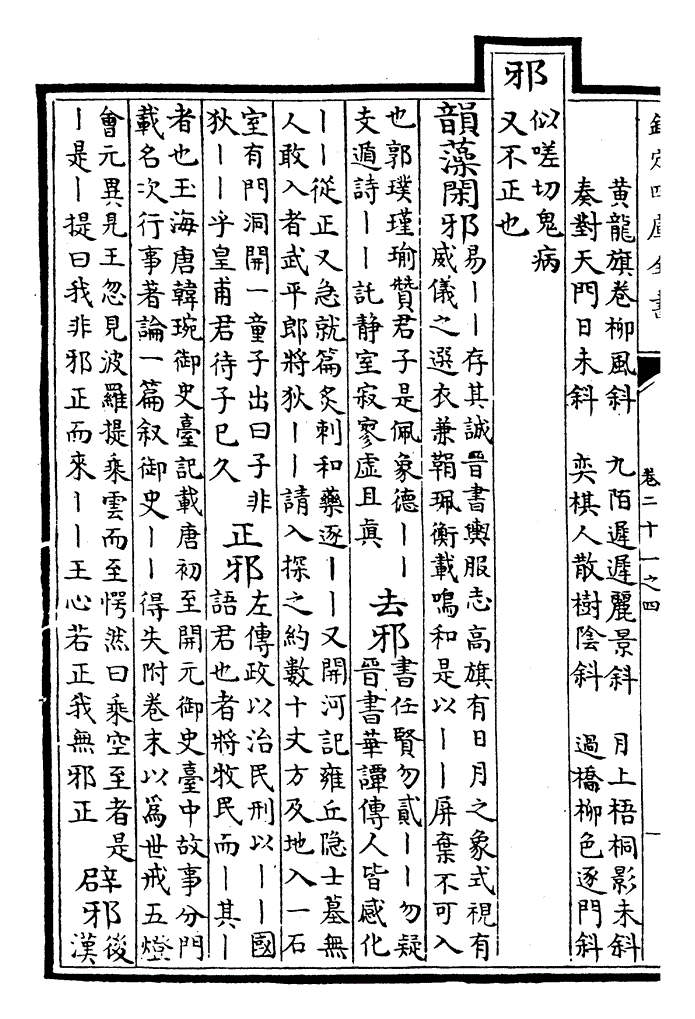 欽定四庫全書
卷二十一之四
黄龍旗卷柳風斜　九陌遲遲麗景斜　月上梧桐影未斜
奏對天門日未斜　奕棋人散樹陰斜　過橋柳色逐門斜
邪
似嗟切鬼病
又不正也
韻藻閑邪
易――存其誠晉書輿服志高旗有日月之象式視有
威儀之選衣兼鞙珮衡載嗚和是以――屏棄不可入
也郭璞瑾瑜贊君子是佩象德――
支遁詩――託静室寂寥虚且真
去邪
書任賢勿貳――勿疑
晉書華譚傳人皆感化
――從正又急就篇灸刺和藥逐――又開河記雍丘隐士墓無
人敢入者武平郎將狄――請入探之約數十丈方及地入一石
室有門洞開一童子出曰子非
狄――乎皇甫君待子已久
正邪
左傳政以治民刑以――國
語君也者將牧民而―其―
者也玉海唐韓琬御史臺記載唐初至開元御史臺中故事分門
載名次行事著論一篇叙御史――得失附卷末以為世戒五燈
會元異見王忽見波羅提乘雲而至愕然曰乘空至者是
―是―提曰我非邪正而來――王心若正我無邪正
辟邪
後
漢